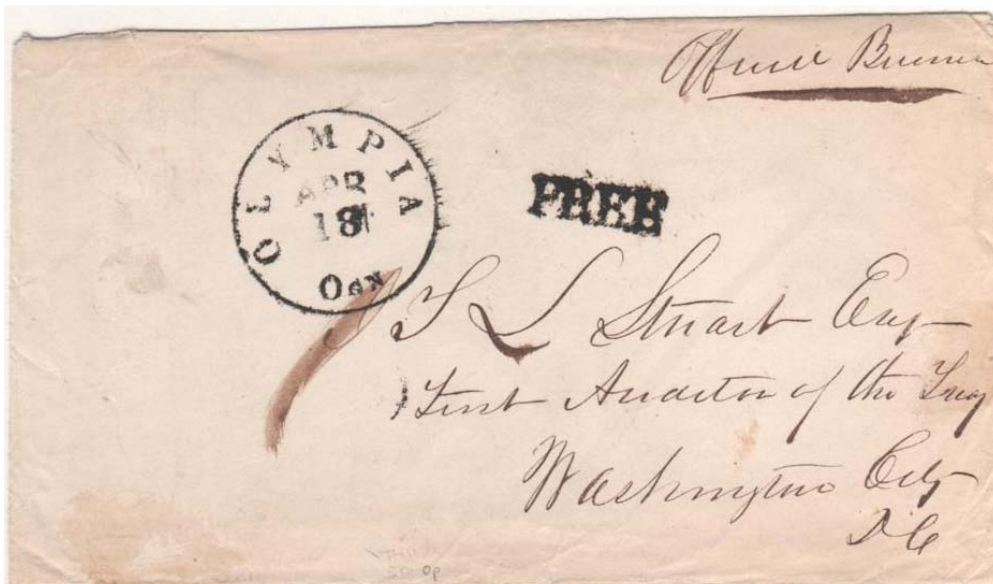 Official Business
OLYMPIA
APR
18
OGN
FREE
T L Stuart Esq
First Auditor of the Treay
Washington City
DC